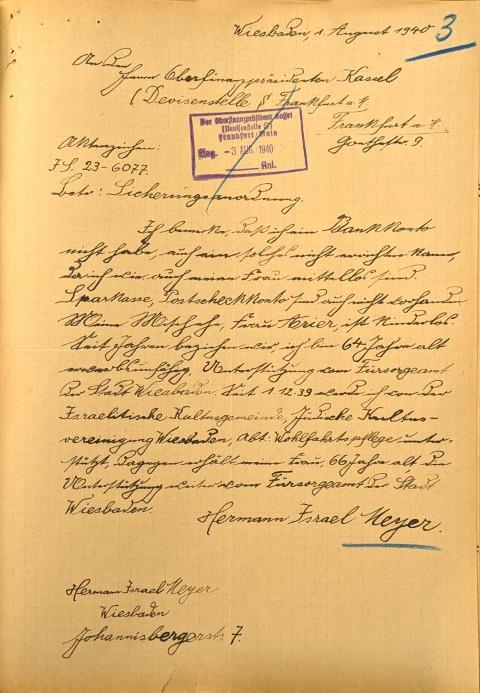 Wiesbaden, 1. August 1940
3
An den
Herrn Oberfinanzpräsidenten Kassel
(Devisenstelle S Frankfurt a M.
Frankfurt a M.
Goethestr 9.
Der Oberfinanzpräsident Kassel
(Devisenstelle S)
Frankfurt/Main
Eing. -3 AUG. 1940
Anl.
Aktenzeichen:
JS. 23-6077.
Betr: Sicherungsanordnung.
Ich bemerke, daß ich ein Bankkonto
nicht habe, auch ein solches nicht errichten kann,
da ich wie auch meine Frau mittellos sind.
Sparkasse, Postscheckkonto sind auch nicht vorhanden
Meine Mischehe, Frau Arier, ist kinderlos.
Seit Jahren beziehen wir, ich bin 64 Jahre alt
Unterstützung vom Fürsorgeamt
der Stadt Wiesbaden. Seit 1.12.39 werde ich von der
Israelitische Kultusgemeinde, Jüdische Kultus-
vereinigung Wiesbaden, Abt: Wohlfahrtspflege unter-
stützt, dagegen erhält meine Frau, 66 Jahre alt die
Unterstützung weiter vom Fürsorgeamt der Stadt
Wiesbaden.
Hermann Israel Meyer.
Herman Israel Meyer
Wiesbaden
Johannisbergerstr 7.